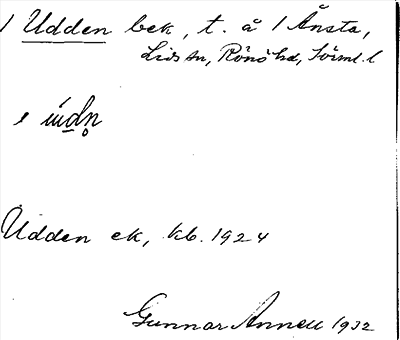 1 Udden bek, t. å 1 Ånsta,
Lids sn, Rönö hd, Sörml. l
Udden ek, kb. 1924
Gunnar Annell 1932